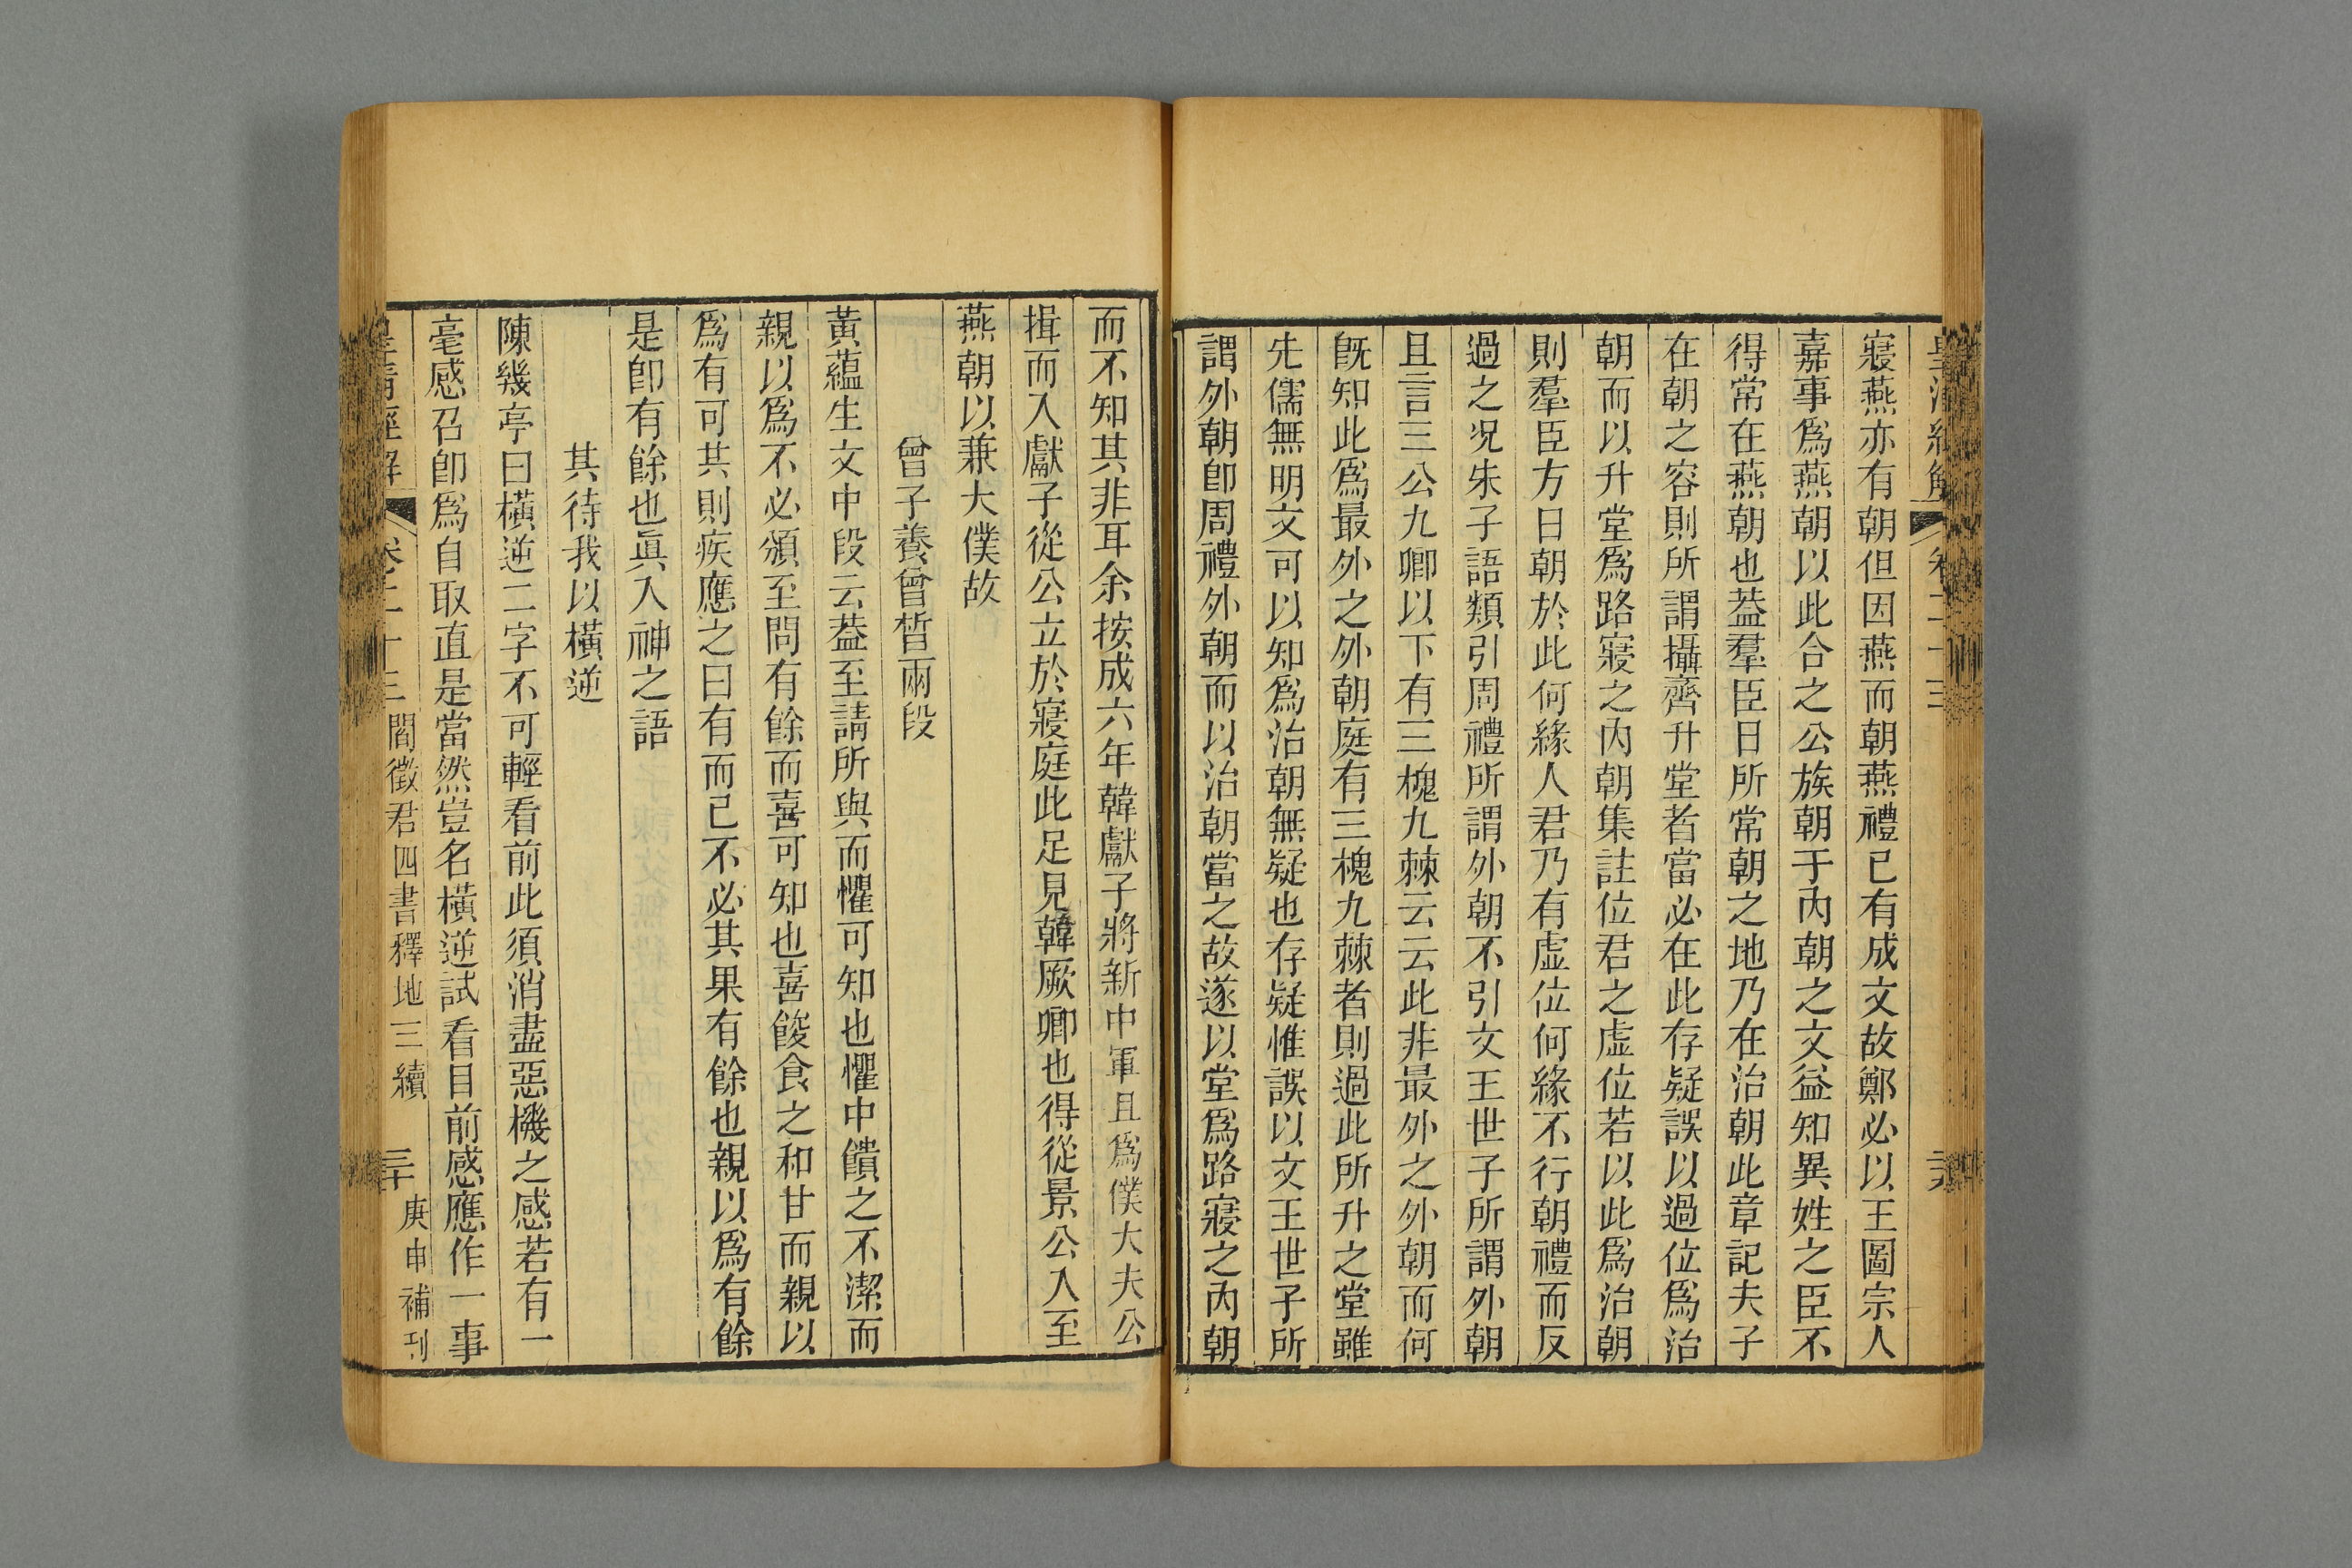 皇清經解 卷二十三
寢燕亦有朝但因燕而朝燕禮已有成文故鄭必以王圖宗人
嘉事爲燕朝以此合之公族朝于內朝之文益知異姓之臣不
得常在燕朝也葢羣臣日所常朝之地乃在治朝此章記夫子
在朝之容則所謂攝齊升堂者當必在此存疑誤以過位爲治
朝而以升堂爲路寢之內朝集註位君之虛位若以此爲治朝
則羣臣方日朝於此何緣人君乃有虛位何緣不行朝禮而反
過之况朱子語類引周禮所謂外朝不引文王世子所謂外朝
且言三公九卿以下有三槐九棘云云此非最外之外朝而何
旣知此爲最外之外朝庭有三槐九棘者則過此所升之堂雖
先儒無明文可以知爲治朝無疑也存疑惟誤以文王世子所
謂外朝卽周禮外朝而以治朝當之故遂以堂爲路寢之內朝
而不知其非耳余按成六年韓獻子將新中軍且爲僕大夫公
揖而入獻子從公立於寢庭此足見韓厥卿也得從景公入至
燕朝以兼大僕故
曾子養曾晳兩段
黃蘊生文中段云葢至請所與而懼可知也懼中饋之不潔而
親以爲不必頒至問有餘而喜可知也喜餕食之和甘而親以
爲有可共則疾應之曰有而已不必其果有餘也親以爲有餘
是卽有餘也眞入神之語
其待我以橫逆
陳幾亭曰橫逆二字不可輕看前此須消盡惡機之感若有一
毫感召卽爲自取直是當然豈名橫逆試看目前感應作一事
皇清經解 卷二十三 閻徵君四書釋地三續 三十 庚申補刊